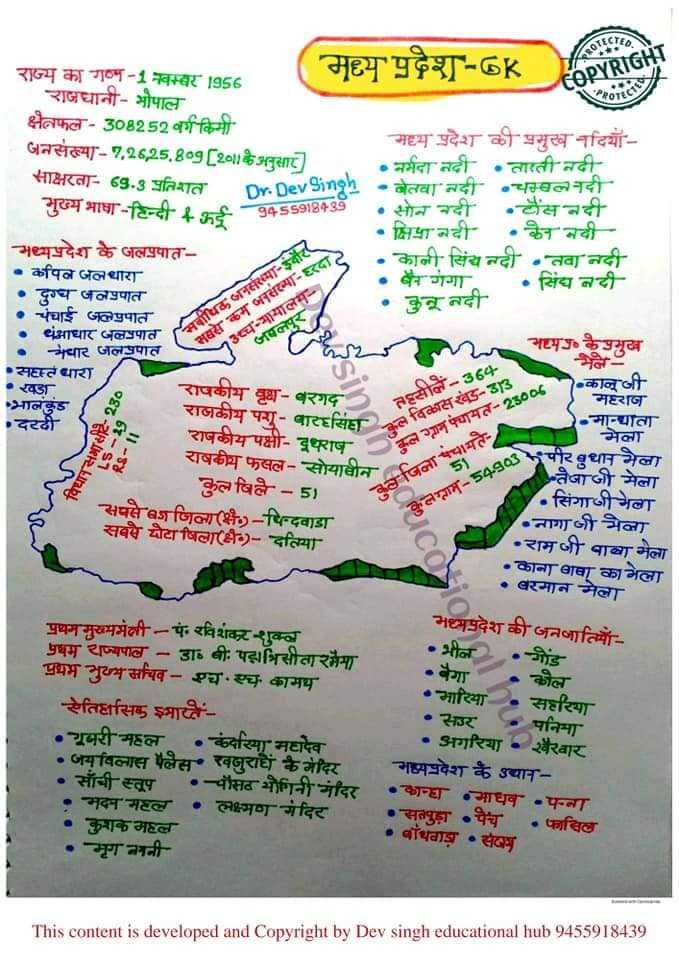 मध्य प्रदेश-GK
PROTECTED
COPYRIGHT
PROTECTED
राज्य का गठन -1 नवम्बर 1956
राजधानी - भोपाल
क्षेत्रफल - 308252 वर्ग किमी
जनसंख्या - 7,26,25,809 [2011 के अनुसार]
साक्षरता- 69.3 प्रतिशत
मुख्य भाषा -हिन्दी + उर्दू
Dr. Dev Singh
9455918439
मध्य प्रदेश की प्रमुख नदियाँ-
• नर्मदा नदी • ताप्ती नदी
• बेतवा नदी • चम्बल नदी
• सोन नदी • टौंस नदी
• क्षिप्रा नदी • केन नदी
• काली सिंध नदी • तवा नदी
• बैन गंगा • सिंध नदी
• कुनू नदी
मध्यप्रदेश के जलप्रपात-
• कपिल जलधारा
• दुग्ध जलप्रपात
• चचाई जलप्रपात
• धुंआधार जलप्रपात
• जलप्रपात
• सहस्त धारा
• भालकुंड
• दरदी
सर्वाधिक जनसंख्या-इन्दौर
सबसे कम जनसंख्या- हरदा
उच्च-न्यायालय-
जबलपुर
विधान सभा सीट- 230
LS - 29
RS - 11
राजकीय वृक्ष - बरगद
राजकीय पशु - बारहसिंहा
राजकीय पक्षी - दूधराज
राजकीय फसल - सोयाबीन
कुल जिले - 51
सबसे बड़ा जिला (क्षे०) - छिन्दवाडा
सबसे छोटा जिला (क्षे०) - दतिया
तहसीलें - 364
कुल विकास खंड- 313
कुल ग्राम पंचायत- 23006
कुल जिला पंचायते-
51
कुल ग्राम - 54903
मध्यप्र० के प्रमुख
मेले-
• कान्हजी
महराज
• मान्धाता
मेला
• पीर बुधान मेला
• तेजाजी मेला
• सिंगाजी मेला
• नागाजी मेला
• रामजी बाबा मेला
• काना बाबा का मेला
• बरमान मेला
प्रथम मुख्यमंत्री - पं. रविशंकर शुक्ल
प्रथम राज्यपाल - डा० बी. पट्टाभिसीतारमैया
प्रथम मुख्य सचिव - एच. एच. कामथ
ऐतिहासिक इमारतें-
• गूजरी महल • कंदरिया महादेव
• जयविलास पैलेस • खजुराहों के मंदिर
• साँची स्तूप • चौसठ योगिनी मंदिर
• मदन महल • लक्ष्मण मंदिर
• कुशक महल
• मृग नयनी
मध्यप्रदेश की जनजातियाँ-
• भील • गोंड
• बैगा • कोल
• भारिया • सहरिया
• सउर • पनिया
• अगरिया • खैरवार
मध्यप्रदेश के उधान-
• कान्हा • माधव • पन्ना
• सतपुड़ा • पेंच • फासिल
• बाँधवगढ़ • संजय
Dev singh educational hub
This content is developed and Copyright by Dev singh educational hub 9455918439